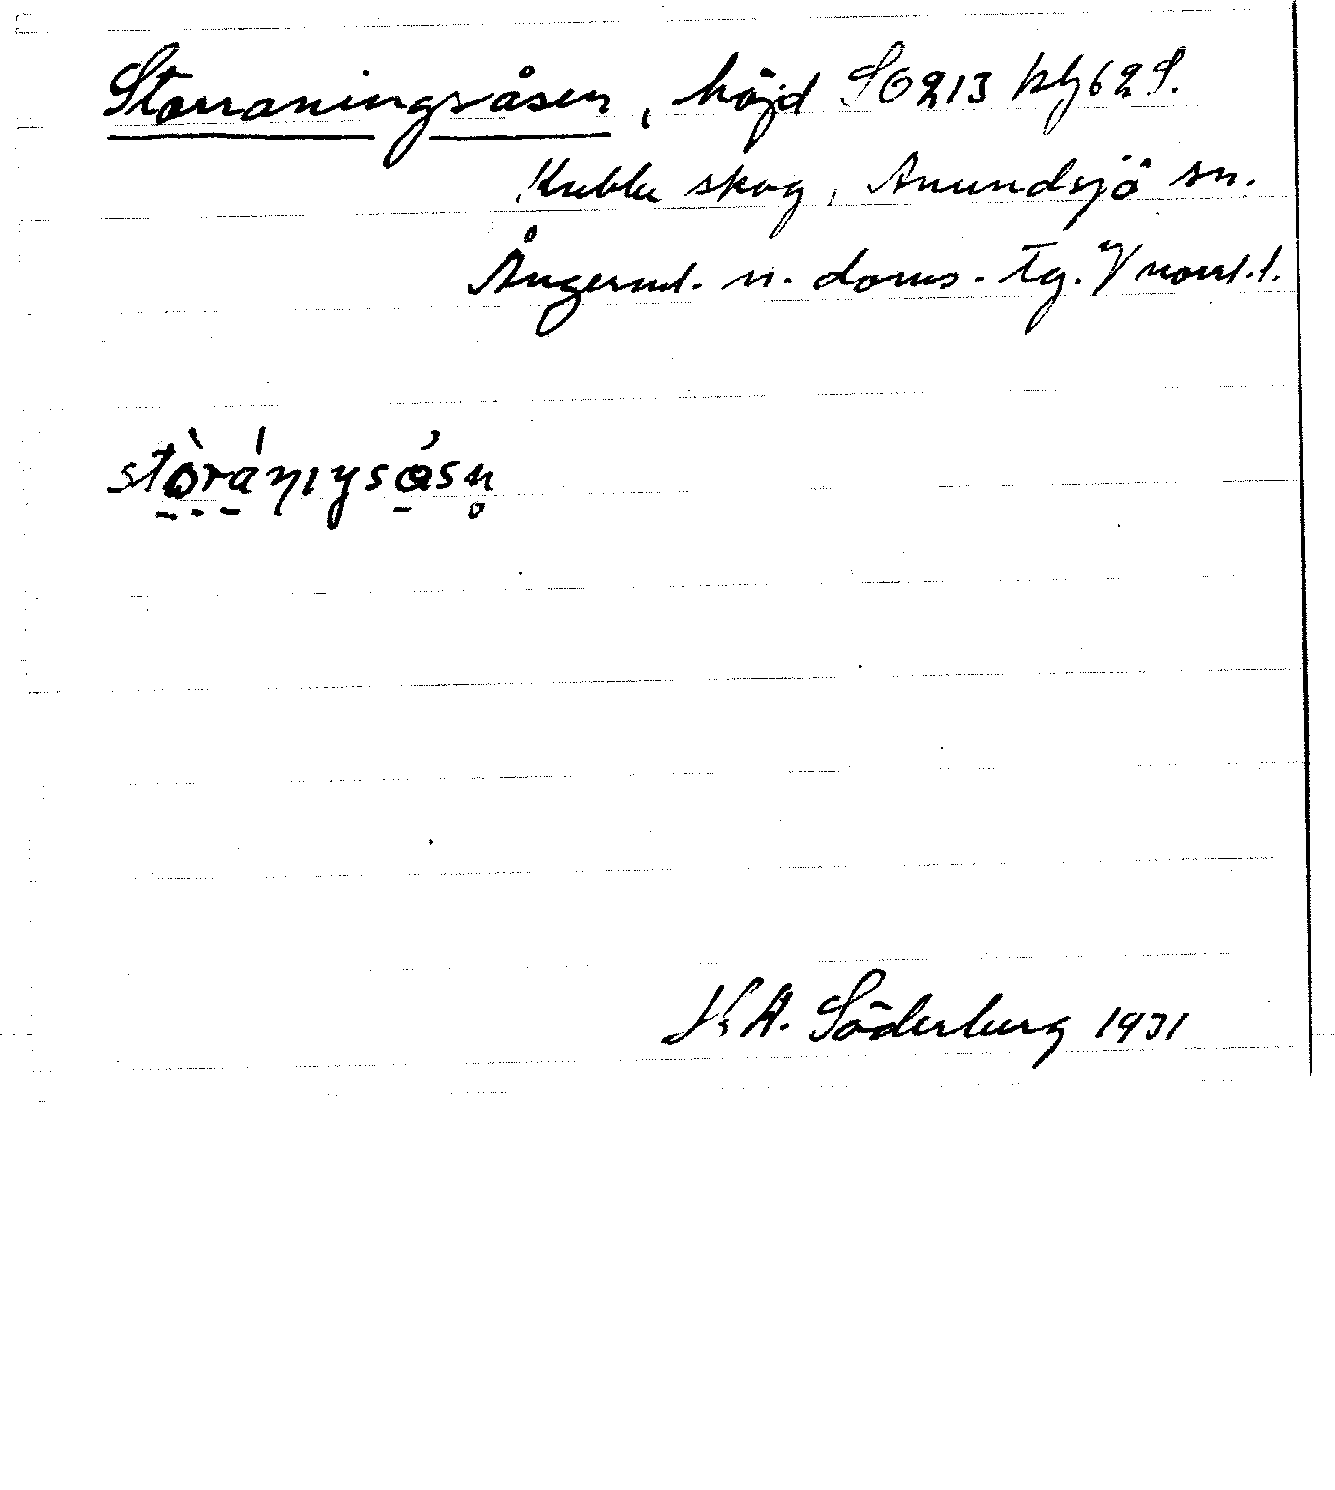 Storraningsåsen, höjd SO 213 kbj 62 S.
Kubbe skog, Anundsjö sn.
Ångerml. n. doms. Tg. Vnorrl. l.
stòránıŋsåsn̥
K. A. Söderberg 1931